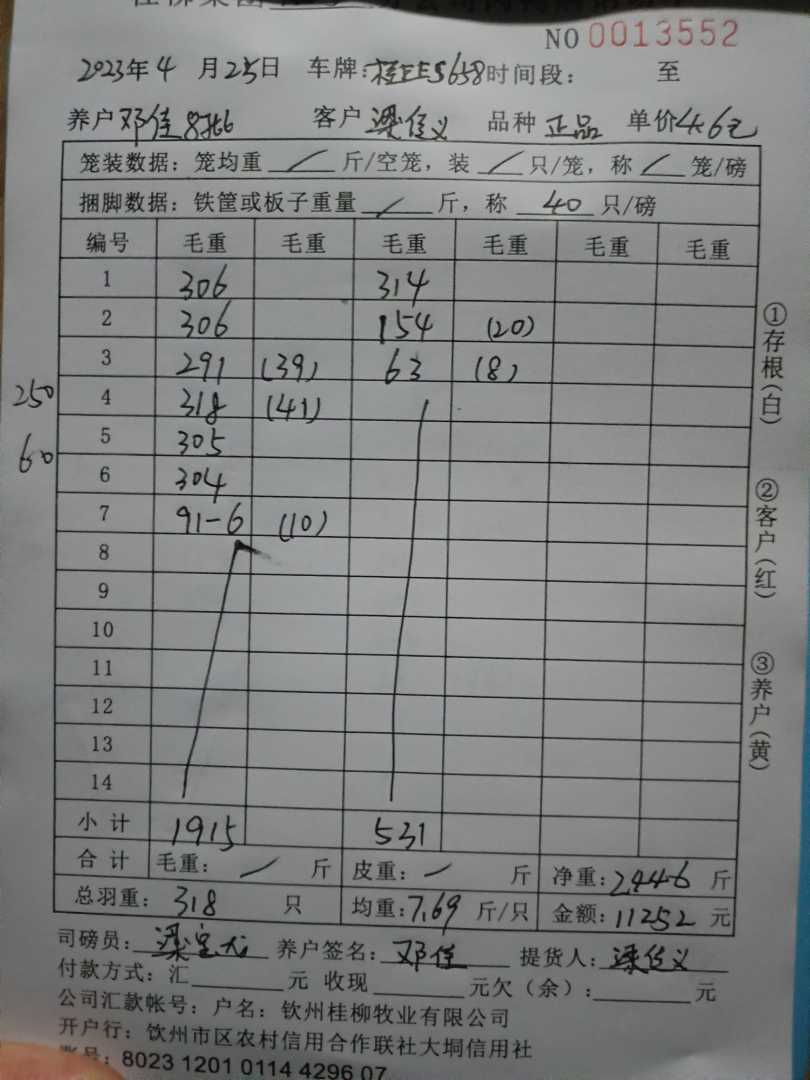 NO 0013552
2023年4月25日 车牌:桂EE5658时间段: 至
养户邓佳8批6 客户梁信义 品种正品 单价4.6元
笼装数据:笼均重/斤/空笼,装/只/笼,称/笼/磅
捆脚数据:铁筐或板子重量/斤,称40只/磅
编号 毛重 毛重 毛重 毛重 毛重 毛重
1 306 314
2 306 154 (20)
3 291 (39) 63 (8)
4 318 (41)
5 305
6 304
7 91-6 (10)
8
9
10
11
12
13
14
250
60
小计 1915 531
合计 毛重:/斤 皮重:/斤 净重:2446斤
总羽重:318只 均重:7.69斤/只 金额:11252元
司磅员: 养户签名:邓佳 提货人:梁信义
付款方式:汇 元 收现 元欠(余): 元
公司汇款帐号:户名:钦州桂柳牧业有限公司
开户行:钦州市区农村信用合作联社大垌信用社
账号:8023 1201 0114 4296 07
①存根(白)
②客户(红)
③养户(黄)